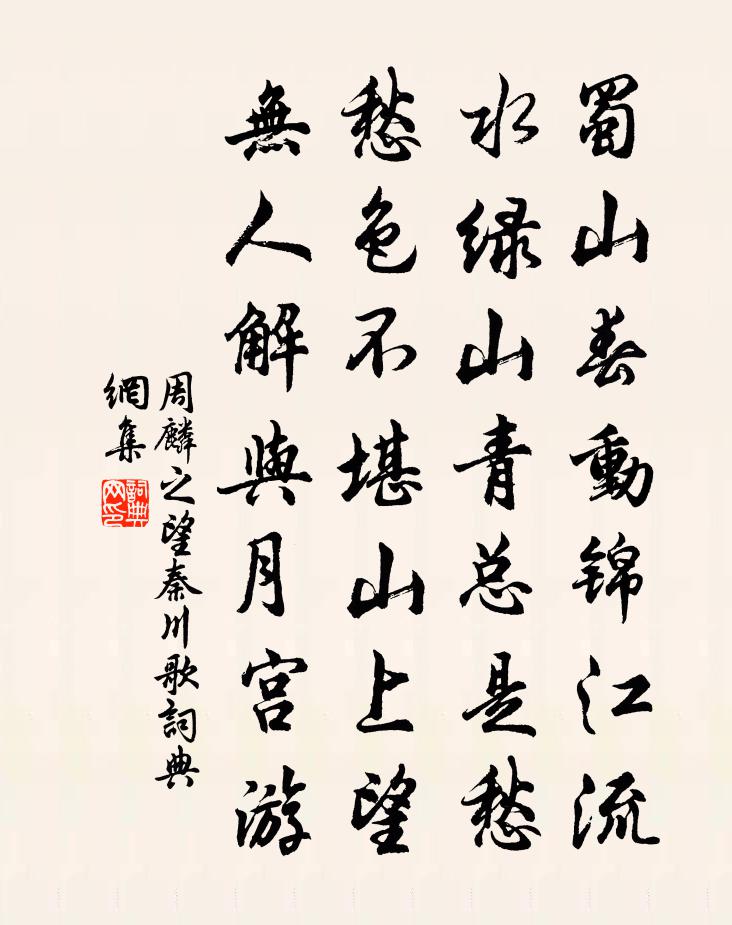 蜀山春動锦江流
水緑山青总是愁
愁色不堪山上望
無人解與月宫游
周麟之望秦川歌詞典
網集
詞典
网印